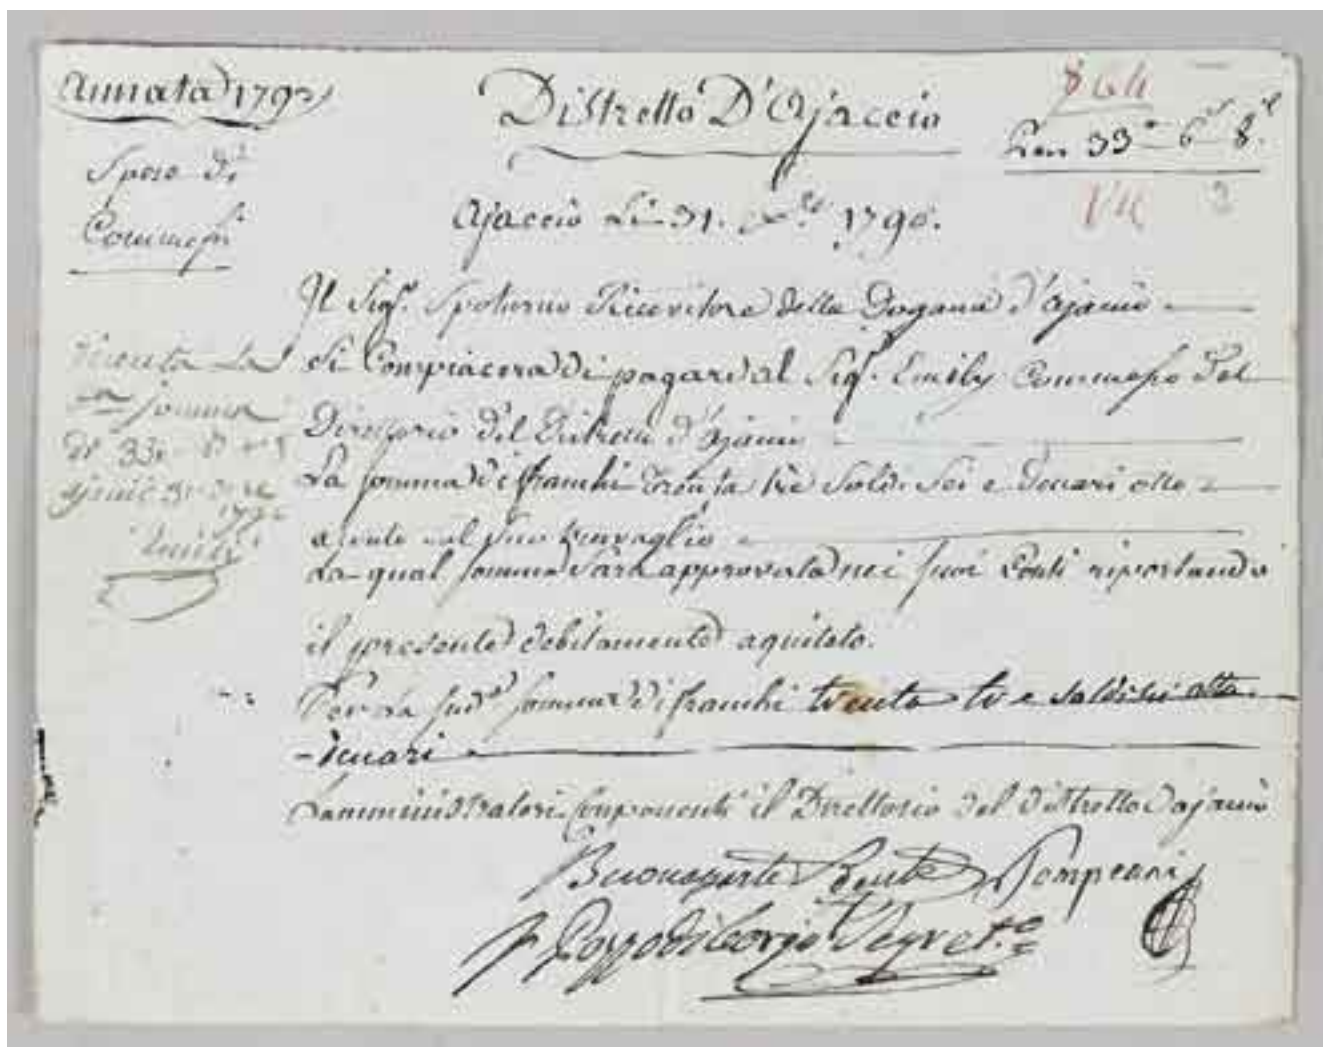 Annata 1792
Spese di
Commessi
Distretto D'Ajaccio
Per 33 6 8
Ajaccio Li 31. 1792.
Il Sigr. Spoturno Ricevitore della Dogana d'Ajaccio
Si Compiacera di pagare al Sigr. Emily Commesso del
Direttorio del Distretto d'Ajaccio
La somma di franchi Trenta tré Soldi Sei e Denari otto
a conto sul suo travaglio
La qual somma Sarà approvata nei suoi Conti riportando
il presente debitamente aquitato.
Per La sudª somma di franchi trenta tre Soldi sei otto
-denari
L'amministratori Componenti il Direttorio del distretto d'ajaccio
Buonaparte Conti Pompeani
Pozzodiborgo Segret.º
La
somma
di 33
Emily